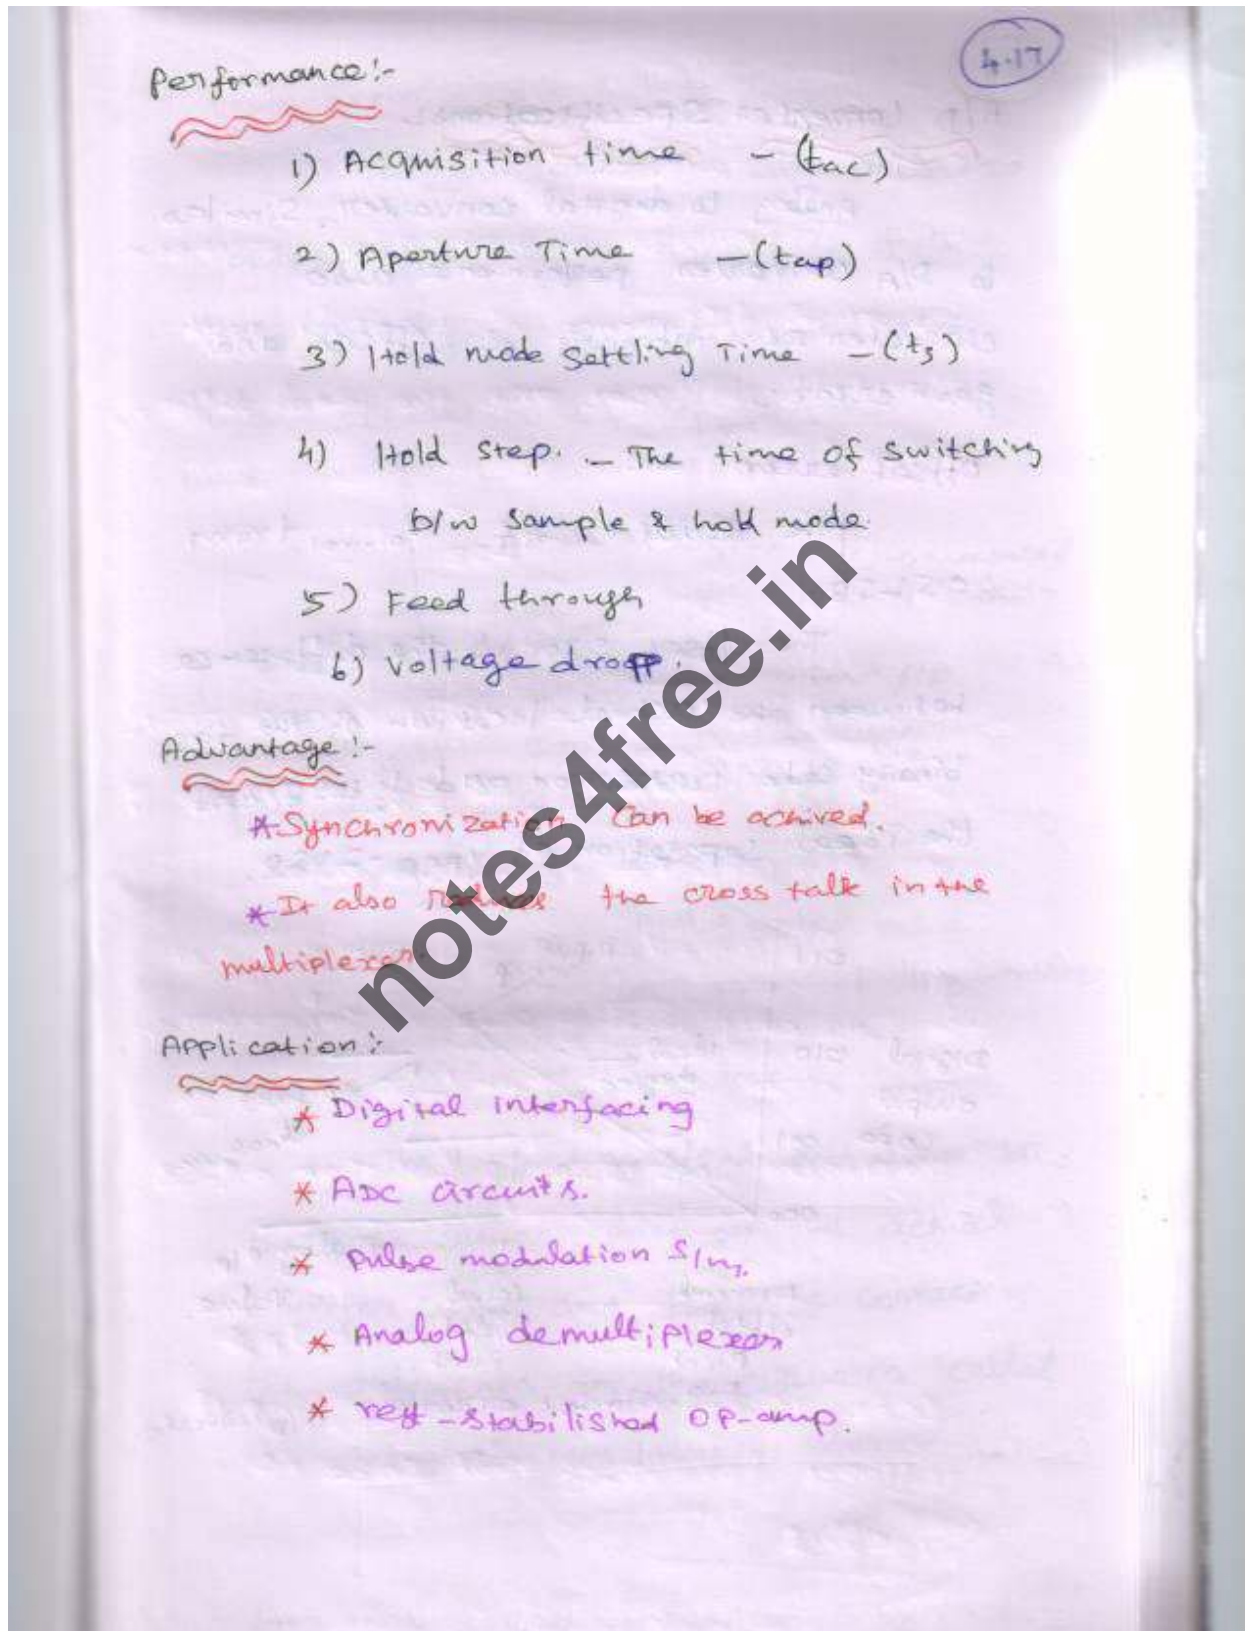 4.17
Performance:-
1) Acquisition time - (tac)
2) Aperture Time - (tap)
3) Hold mode Settling Time - (ts)
4) Hold Step. - The time of switching
b/w sample & hold mode.
5) Feed through
6) Voltage drop.
Advantage:-
* Synchronization Can be achived.
* It also reduces the cross talk in the
multiplexer.
Application:-
* Digital interfacing
* ADC circuits.
* Pulse modulation S/m.
* Analog demultiplexer
* -stabilished OP-amp.
notes4free.in